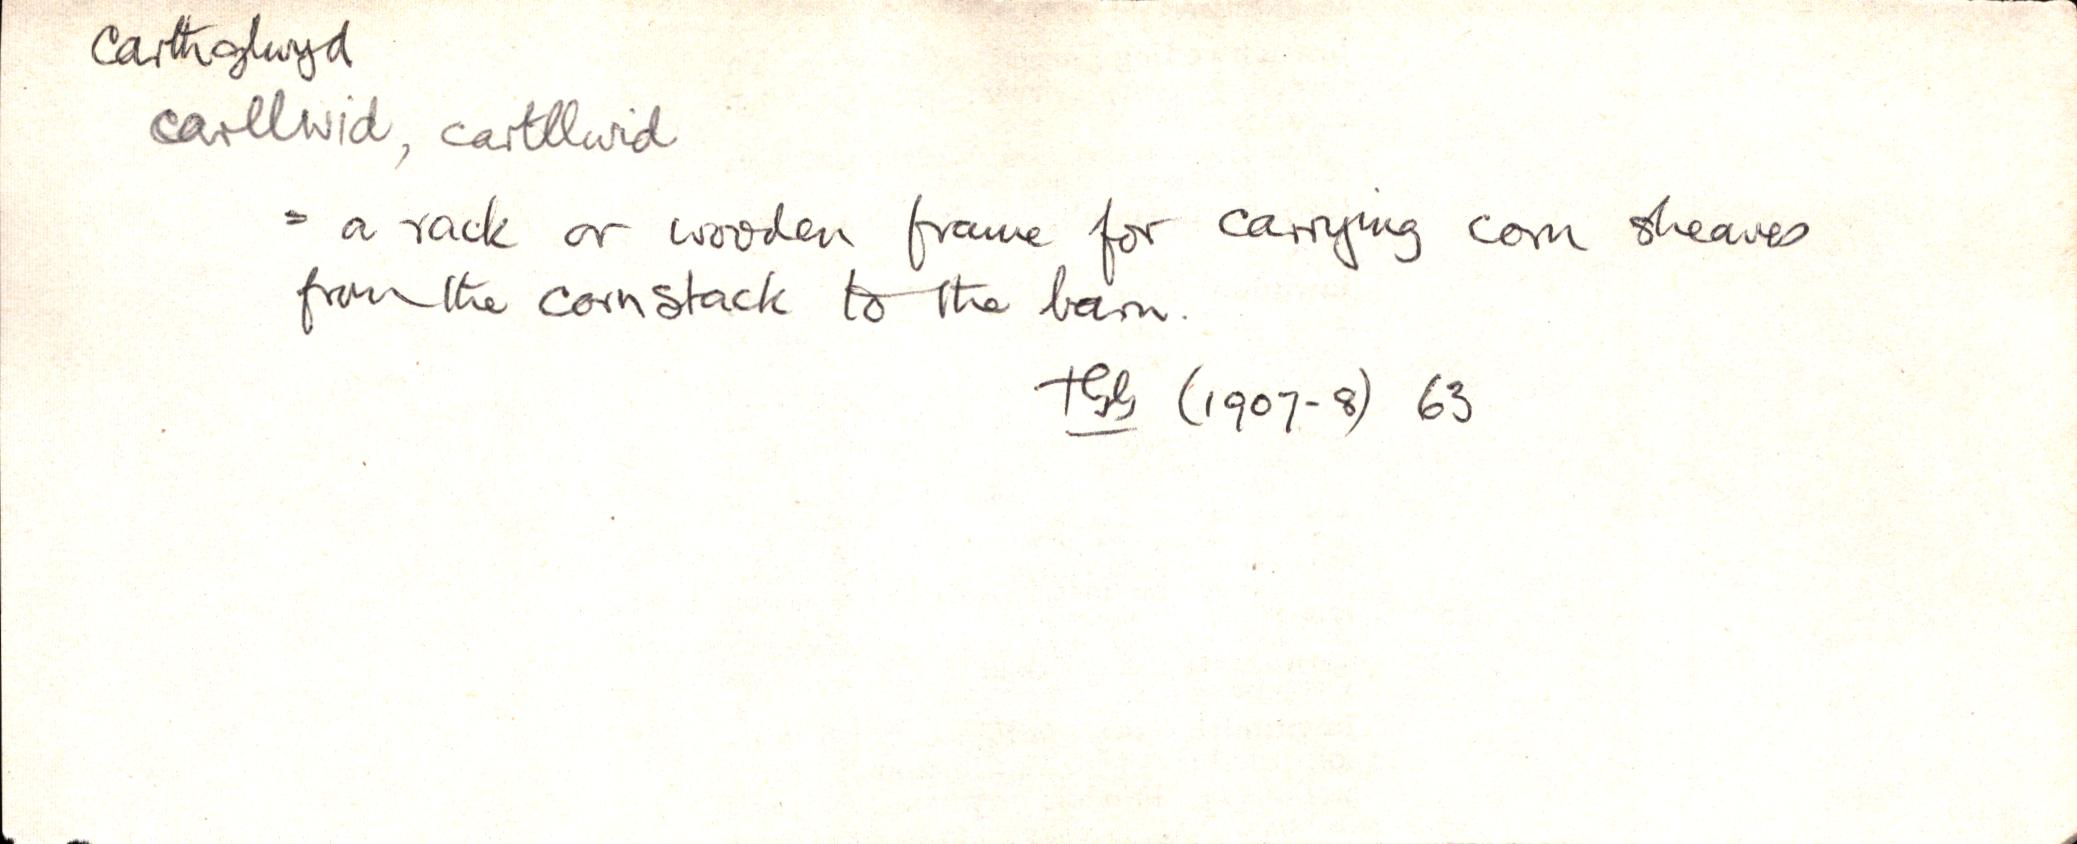 Carthglwyd
carllwid, cartllwid
= a rack or wooden frame for carrying corn sheaves
from the cornstack to the barn.
(1907-8) 63